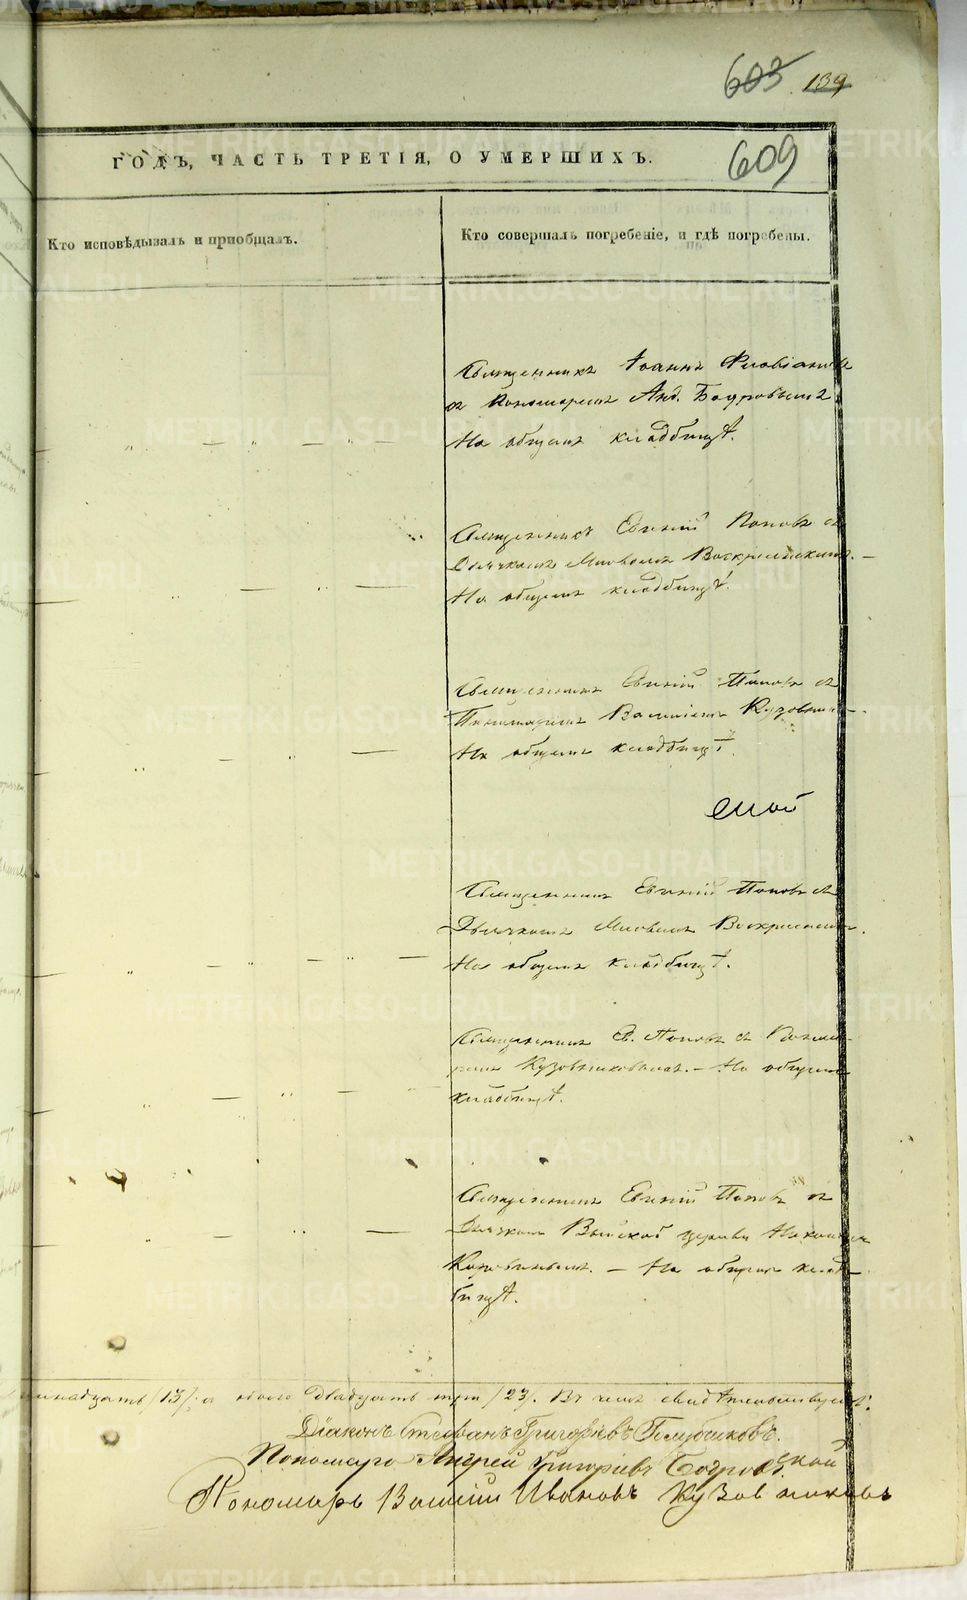 603 139
609
ГОДЪ, ЧАСТЬ ТРЕТІЯ, О УМЕРШИХЪ.
Кто исповѣдывалъ и пріобщалъ.
Кто совершалъ погребеніе, и гдѣ погребены.
Священникъ Іоаннъ Флавіановъ
съ Пономаремъ Анд. Бобровымъ
На общемъ кладбищѣ.
Священникъ Евгеній Поповъ съ
Дьячкомъ Воскресенскимъ. —
На общемъ кладбищѣ.
Священникъ Евгеній Поповъ съ
Пономаремъ Василіемъ
На общемъ кладбищѣ.
Священникъ Евгеній Поповъ съ
Дьячкомъ
На общемъ кладбищѣ.
Священникъ Ев. Поповъ съ Понома-
ремъ Кузовниковымъ. — На общемъ
кладбищѣ.
Священникъ Евгеній Поповъ съ
Дьячкомъ Выйской церкви
— На общемъ клад-
бищѣ.
/13/, а обоего двадцать три /23/. Въ чемъ свидѣтельствуютъ:
Діаконъ Стефанъ Григорьевъ
Пономарь Андрей Григорьевъ
Пономарь Василій Ивановъ Кузовниковъ
METRIKI.GASO-URAL.RU